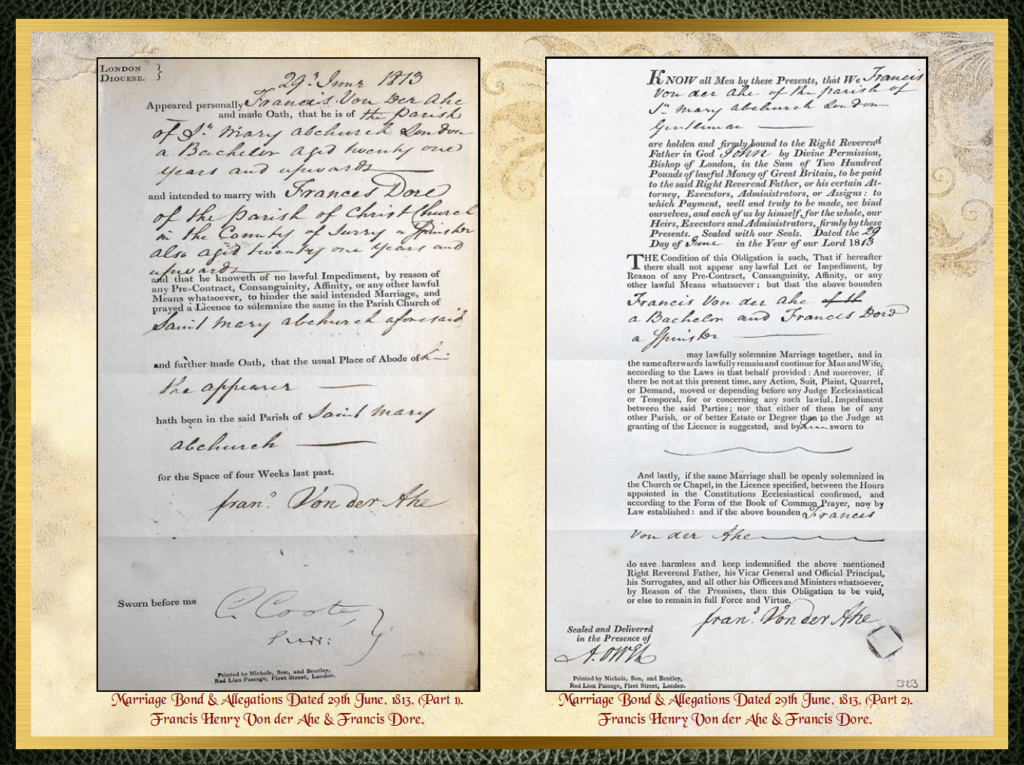 LONDON
DIOCESE. }
29th June 1813
Appeared personally Francis Von Der Ahe
and made Oath, that he is of the Parish
of St. Mary abchurch London
a Bachelor aged twenty one
years and upwards
and intended to marry with Frances Dore
of the Parish of Christ Church
in the County of Surry a Spinster
also aged twenty one years and
upwards
and that he knoweth of no lawful Impediment, by reason of
any Pre-Contract, Consanguinity, Affinity, or any other lawful
Means whatsoever, to hinder the said intended Marriage, and
prayed a Licence to solemnize the same in the Parish Church of
Saint Mary abchurch aforesaid
and further made Oath, that the usual Place of Abode of
the appearer
hath been in the said Parish of Saint Mary
abchurch
for the Space of four Weeks last past.
Frans. Von der Ahe
Sworn before me
C. Coote
Surr:
Printed by Nichols, Son, and Bentley,
Red Lion Passage, Fleet Street, London.
Marriage Bond & Allegations Dated 29th June, 1813, (Part 1).
Francis Henry Von der Ahe & Francis Dore.
KNOW all Men by these Presents, that We Francis
Von der Ahe of the parish of
St. Mary abchurch London
Gentleman
are holden and firmly bound to the Right Reverend
Father in God John by Divine Permission,
Bishop of London, in the Sum of Two Hundred
Pounds of lawful Money of Great Britain, to be paid
to the said Right Reverend Father, or his certain At-
torney, Executors, Administrators, or Assigns: to
which Payment, well and truly to be made, we bind
ourselves, and each of us by himself, for the whole, our
Heirs, Executors and Administrators, firmly by these
Presents. Sealed with our Seals. Dated the 29
Day of June in the Year of our Lord 1813
THE Condition of this Obligation is such, That if hereafter
there shall not appear any lawful Let or Impediment, by
Reason of any Pre-Contract, Consanguinity, Affinity, or any
other lawful Means whatsoever; but that the above bounden
Francis Von der Ahe
a Bachelor and Frances Dore
a Spinster
may lawfully solemnize Marriage together, and in
the same afterwards lawfully remain and continue for Man and Wife,
according to the Laws in that behalf provided: And moreover, if
there be not at this present time, any Action, Suit, Plaint, Quarrel,
or Demand, moved or depending before any Judge Ecclesiastical
or Temporal, for or concerning any such lawful Impediment
between the said Parties; nor that either of them be of any
other Parish, or of better Estate or Degree than to the Judge at
granting of the Licence is suggested, and by him sworn to
And lastly, if the same Marriage shall be openly solemnized in
the Church or Chapel, in the Licence specified, between the Hours
appointed in the Constitutions Ecclesiastical confirmed, and
according to the Form of the Book of Common Prayer, now by
Law established: and if the above bounden Francis
Von der Ahe
do save harmless and keep indemnified the above mentioned
Right Reverend Father, his Vicar General and Official Principal,
his Surrogates, and all other his Officers and Ministers whatsoever,
by Reason of the Premises, then this Obligation to be void,
or else to remain in full Force and Virtue.
Frans. Von der Ahe
Sealed and Delivered
in the Presence of
Printed by Nichols, Son, and Bentley,
Red Lion Passage, Fleet Street, London.
323
Marriage Bond & Allegations Dated 29th June, 1813, (Part 2).
Francis Henry Von der Ahe & Francis Dore.